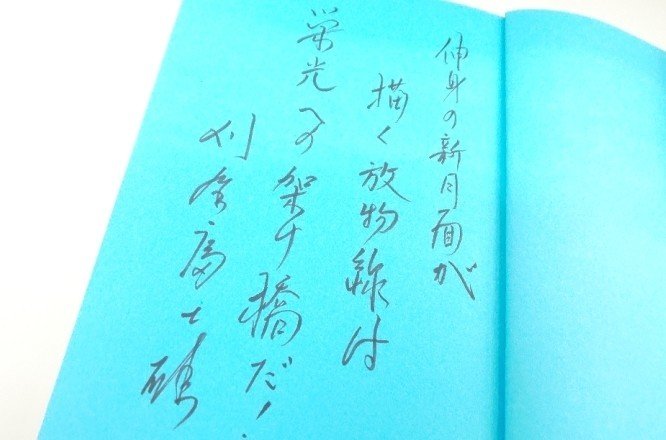 伸身の新月面が
描く放物線は
栄光への架け橋だ!
刈屋富士雄